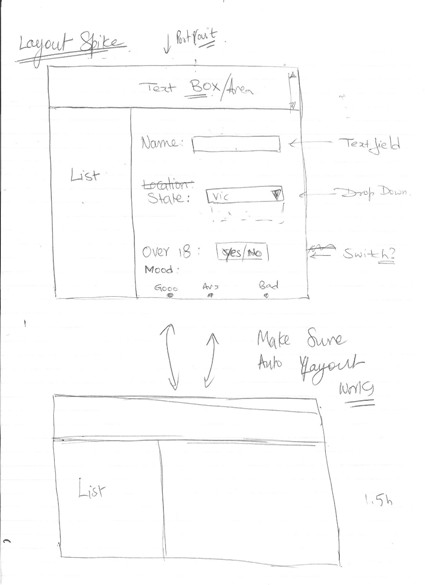 Layout Spike
↓ Portrait
Text Box/Area
Name:
Textfield
List
Location:
State:
Vic
Drop Down
Over 18:
Yes/No
Switch?
Mood:
Good
Avg
Bad
Make Sure
Auto Layout
Works
List
1.5h